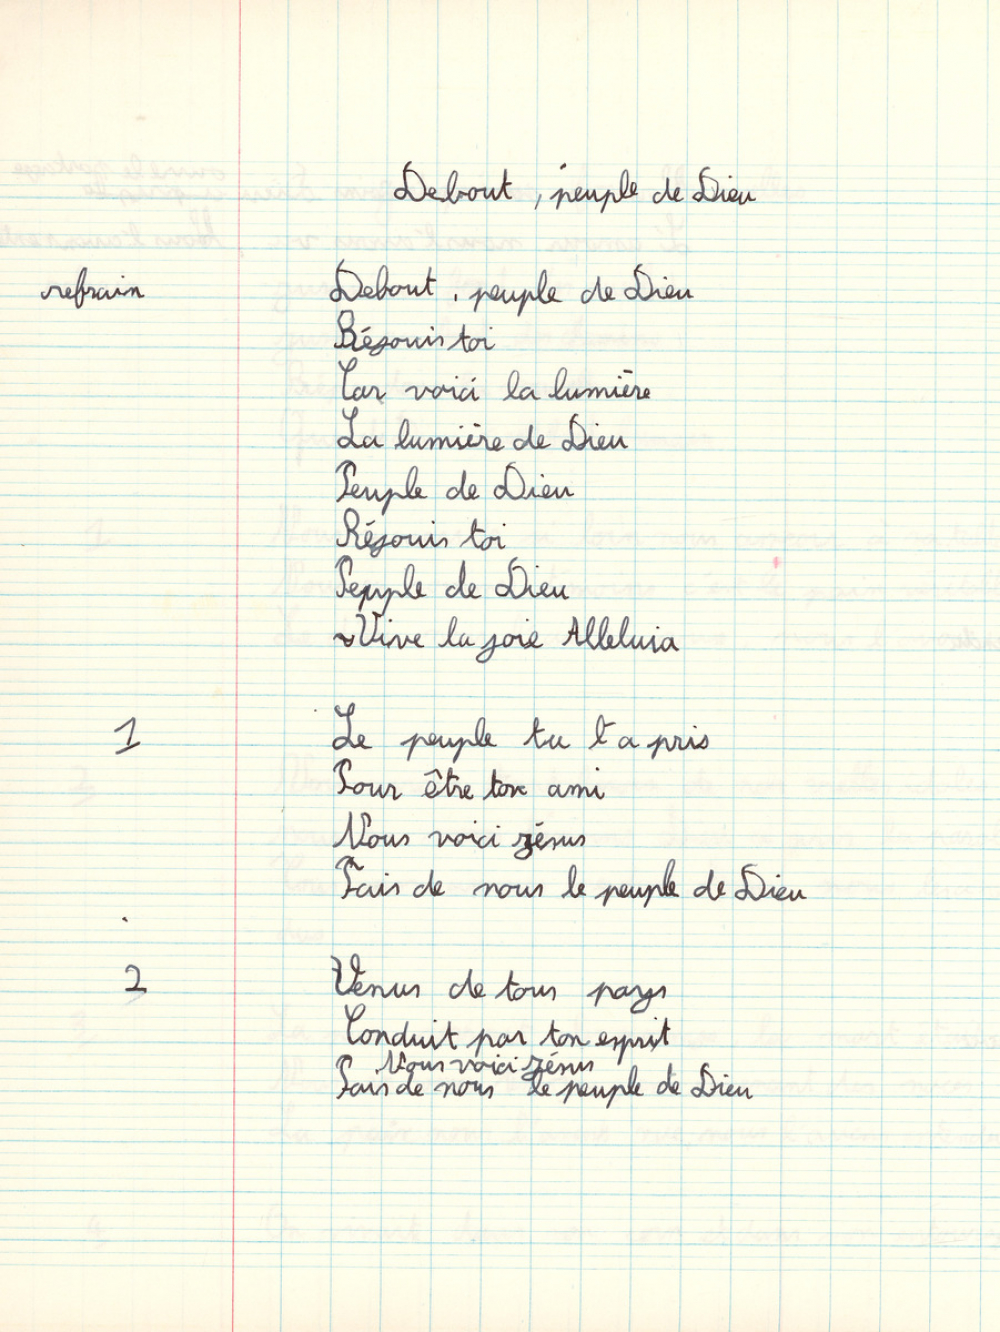 Debout, peuple de Dieu
refrain Debout, peuple de Dieu
Réjouis toi
Car voici la lumière
La lumière de Dieu
Peuple de Dieu
Réjouis toi
Peuple de Dieu
Vive la joie Alleluia
1 Le peuple tu l'a pris
Pour être ton ami
Nous voici jésus
Fais de nous le peuple de Dieu
2 Venus de tous pays
Conduit par ton esprit
Nous voici jésus
Fais de nous le peuple de Dieu